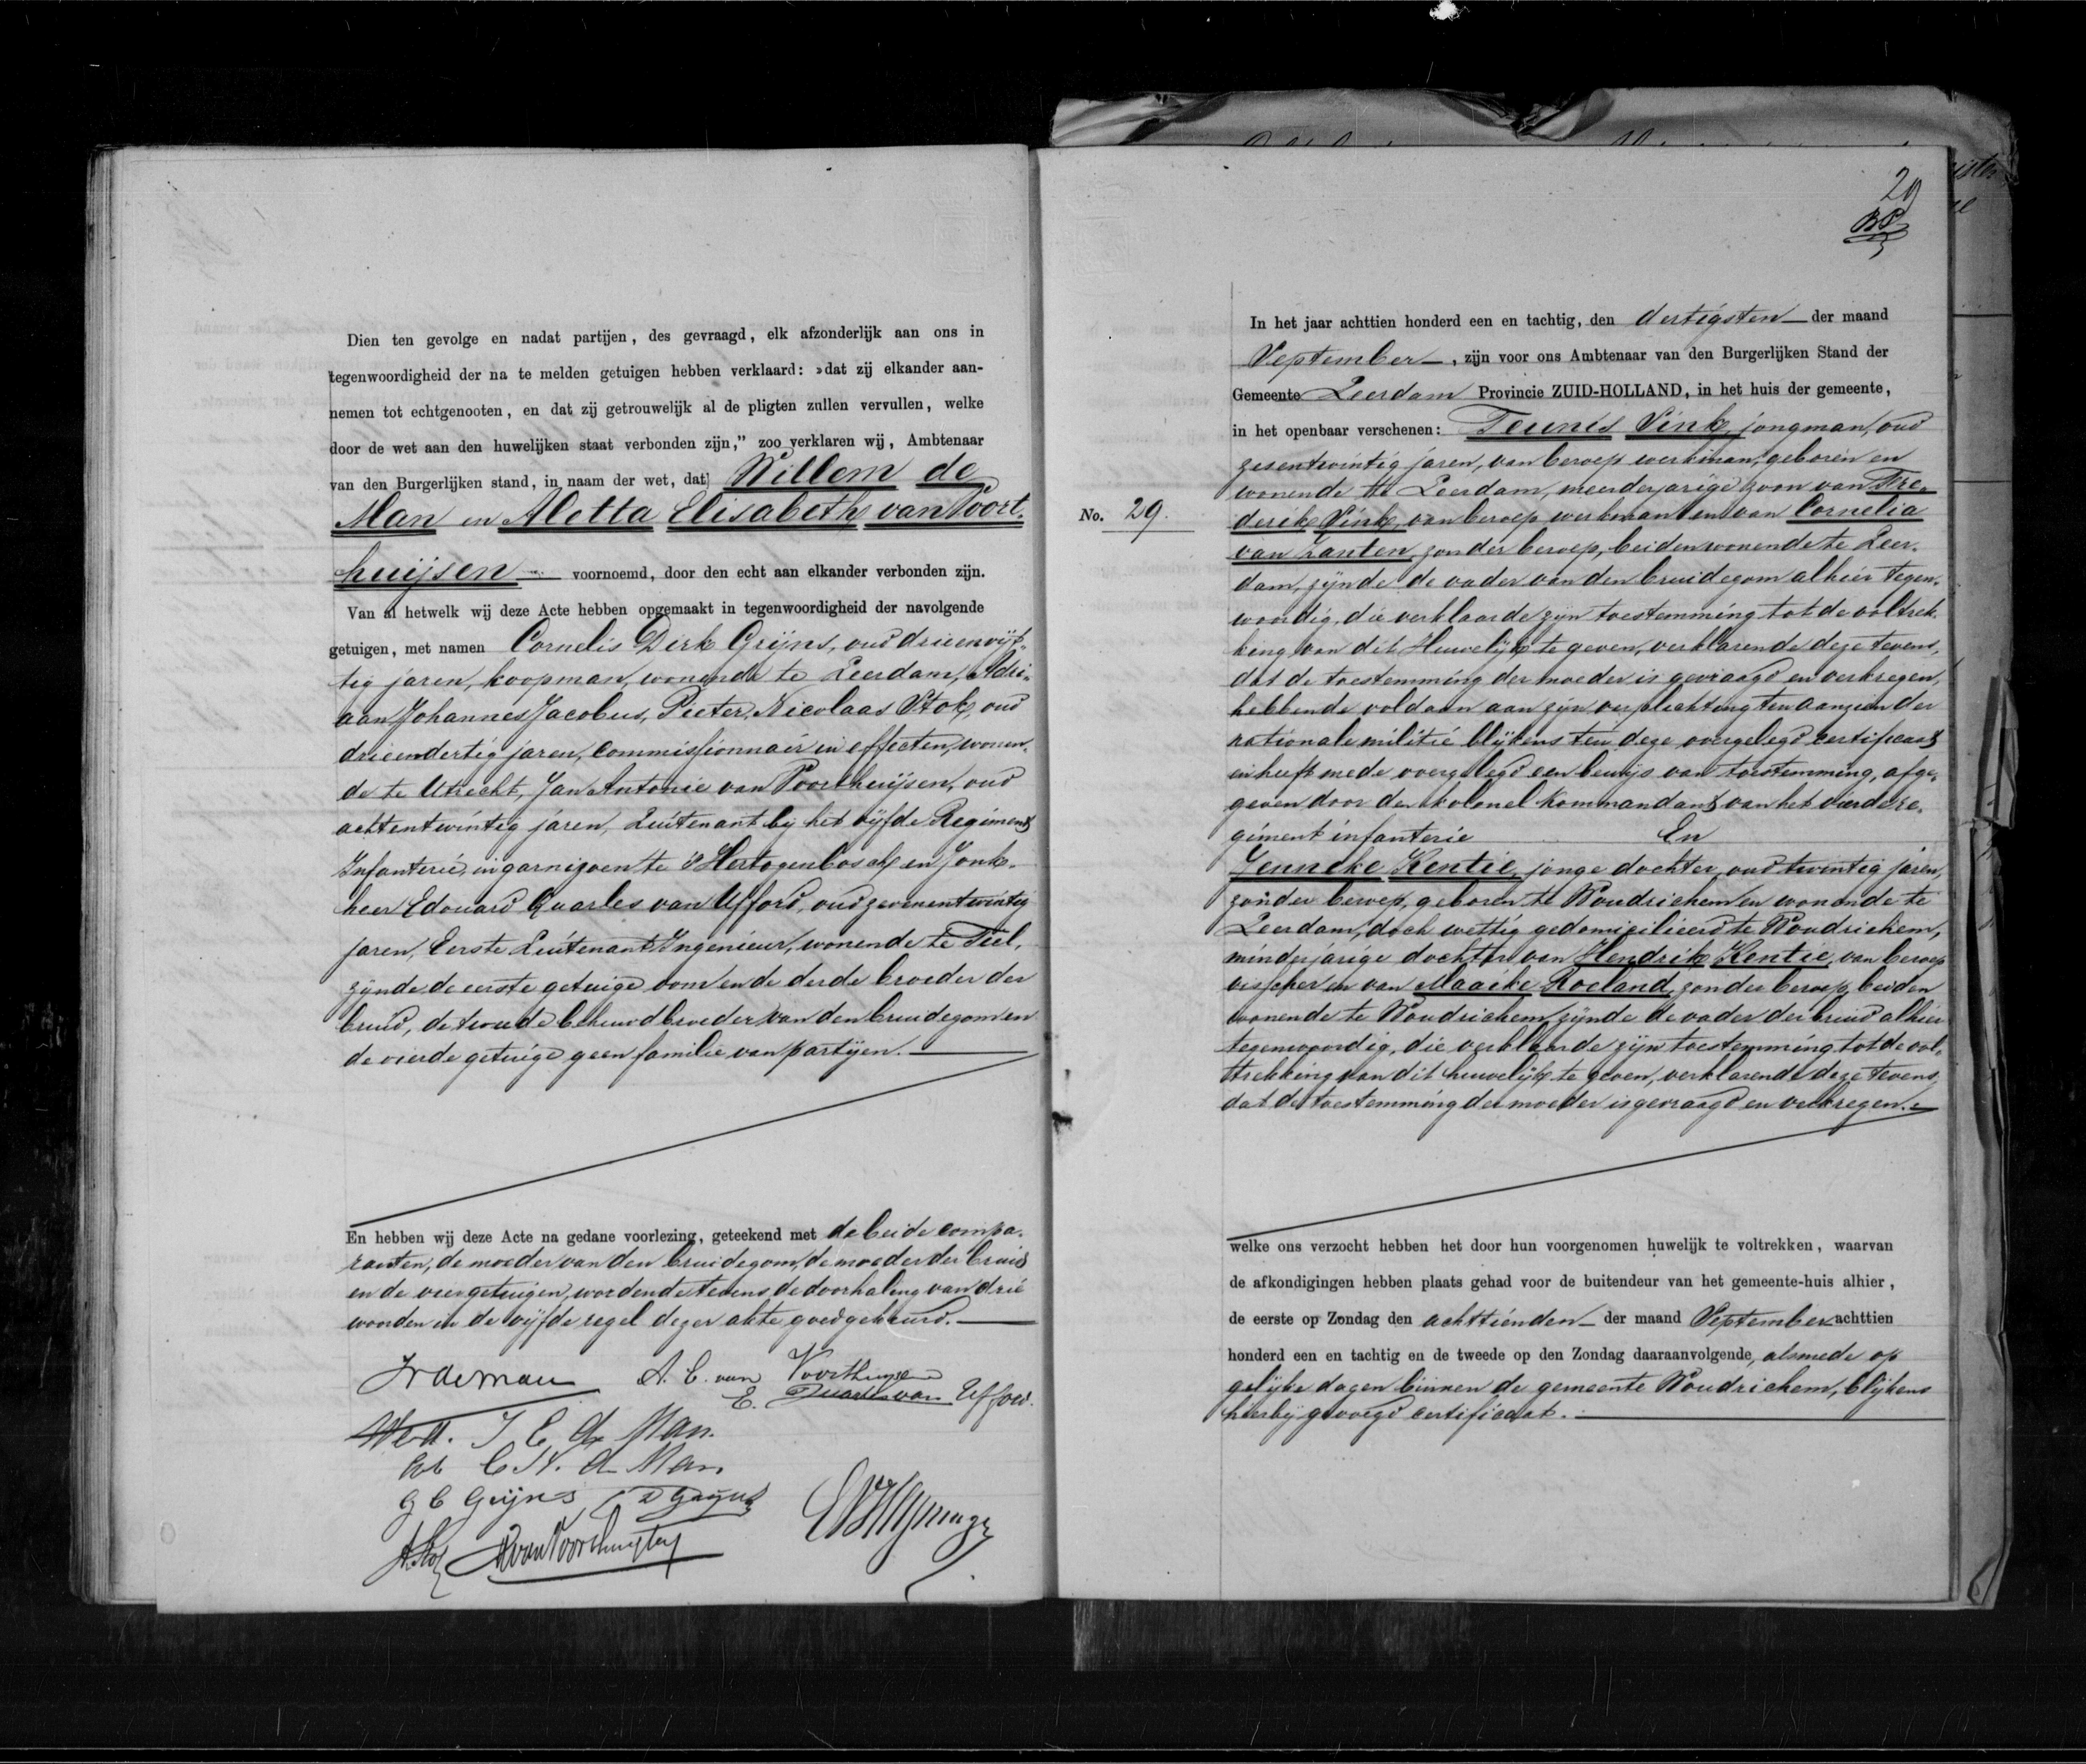 Dien ten gevolge en nadat partijen, des gevraagd, elk afzonderlijk aan ons in
tegenwoordigheid der na te melden getuigen hebben verklaard: »dat zij elkander aan-
nemen tot echtgenooten, en dat zij getrouwelijk al de pligten zullen vervullen, welke
door de wet aan den huwelijken staat verbonden zijn,” zoo verklaren wij, Ambtenaar
van den Burgerlijken stand, in naam der wet, dat Willem de
Man en Aletta Elisabeth van Voort-
huijsen voornoemd, door den echt aan elkander verbonden zijn.
Van al hetwelk wij deze Acte hebben opgemaakt in tegenwoordigheid der navolgende
getuigen, met namen Cornelis Dirk Grijns, oud drieenvijf-
tig jaren, koopman, wonende te Leerdam, Adri-
aan Johannes Jacobus, Pieter, Nicolaas Stok, oud
drieendertig jaren, Commissionnair in effecten, wonen-
de te Utrecht, Jan Antonie van Voorthuijsen, oud
achtentwintig jaren, Luitenant bij het vijfde Regiment
Infanterie, in garnizoen te 's Hertogenbosch en Jonk-
heer Edouard Quarles van Ufford, oud zevenentwintig
jaren, Eerste Luitenant Ingenieur, wonende te Tiel,
zijnde de eerste getuige oom en de derde broeder der
bruid, de tweede behuwdbroeder van den bruidegom en
de vierde getuige geen familie van partijen.
En hebben wij deze Acte na gedane voorlezing, geteekend met de beide compa-
ranten, de moeder van den bruidegom, de moeder der bruid
en de vier getuigen, wordende tevens de doorhaling van drie
woorden in de vijfde regel dezer akte goedgekeurd.
W de Man A. E. van Voorthuijsen
E. Quarles van Ufford.
Wed. J C de Man.
geb C H. de Man
G C Grijns C D Grijns
A. Stok JA van Voorthuijsen
29
BP
In het jaar achttien honderd een en tachtig, den dertigsten der maand
September, zijn voor ons Ambtenaar van den Burgerlijken Stand der
Gemeente Leerdam Provincie ZUID-HOLLAND, in het huis der gemeente,
in het openbaar verschenen: Teunis Vink, jongman, oud
zesentwintig jaren, van beroep werkman, geboren en
wonende te Leerdam, meerderjarige zoon van Fre-
No. 29.
derik Vink, van beroep werkman en van Cornelia
van Zanten, zonder beroep, beiden wonende te Leer-
dam, zijnde de vader van den bruidegom alhier tegen-
woordig, die verklaarde zijn toestemming tot de voltrek-
king van dit Huwelijk te geven, verklarende deze tevens,
dat de toestemming der moeder is gevraagd en verkregen,
hebbende voldaan aan zijn verplichting ten aanzien der
nationale militie blijkens ten deze overgelegd certificaat
en heeft mede overgelegd een bewijs van toestemming, afge-
geven door den kolonel kommandant van het vierde re-
giment infanterie En
Jenneke Kentie, jonge dochter, oud twintig jaren,
zonder beroep, geboren te Woudrichem en wonende te
Leerdam, doch wettig gedomicilieerd te Woudrichem,
minderjarige dochter van Hendrik Kentie, van beroep
visscher en van Maaike Roeland, zonder beroep, beiden
wonende te Woudrichem, zijnde de vader der bruid alhier
tegenwoordig, die verklaarde zijn toestemming tot de vol-
trekking van dit huwelijk te geven, verklarende deze tevens
dat de toestemming der moeder is gevraagd en verkregen.
welke ons verzocht hebben het door hun voorgenomen huwelijk te voltrekken, waarvan
de afkondigingen hebben plaats gehad voor de buitendeur van het gemeente-huis alhier,
de eerste op Zondag den achttienden der maand September achttien
honderd een en tachtig en de tweede op den Zondag daaraanvolgende, alsmede op
gelijke dagen binnen de gemeente Woudrichem, blijkens
hierbij gevoegd certificaat.